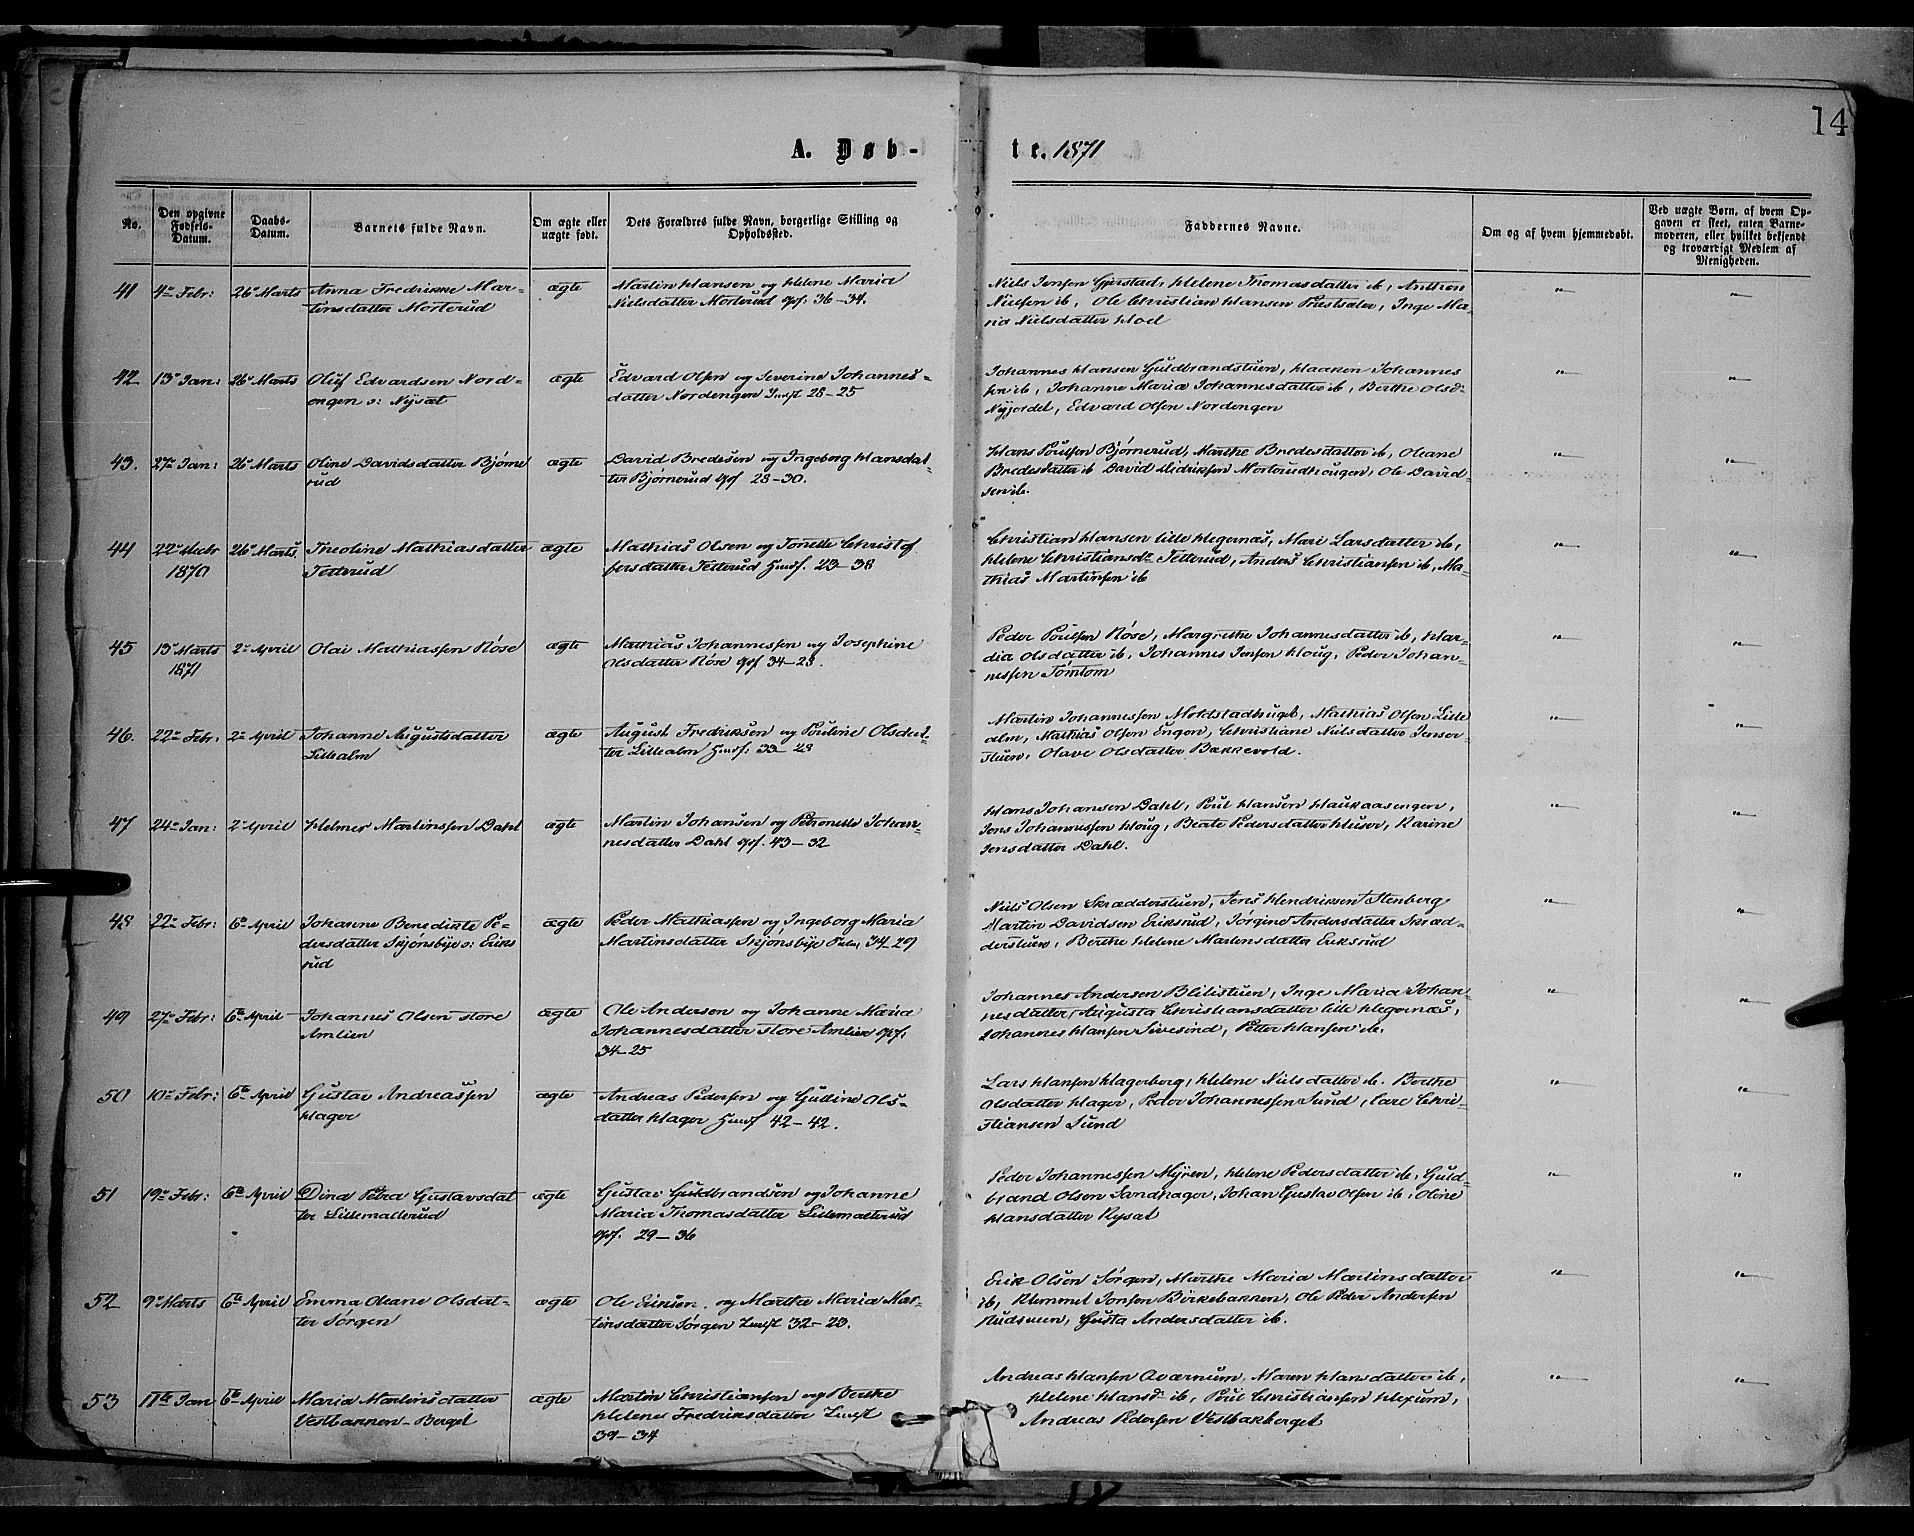 14
A. Døb-
te. 1871
No.
Den opgivne Fødsels-Datum.
Daabs-Datum.
Barnets fulde Navn.
Om ægte eller uægte født.
Dets Forældres fulde Navn, borgerlige Stilling og Opholdssted.
Faddernes Navne.
Om og af hvem hjemmedøbt.
Ved uægte Børn, af hvem Op-
gaven er skeet, enten Barne-
moderen, eller hvilket bekjendt
og troværdigt Medlem af
Menigheden.
41 4de Febr: 26de Marts Anna Fredrikke Mar- ægte Martin Hansen og Helene Maria
tinsdatter Morterud Nielsdatter Morterud gpf. 36-34.
Niels Jensen Gjerstad, Helene Thomasdatter ib, Anthon
Nielsen ib, Ole Christian Hansen Prestsæter, Inge Ma-
ria Nielsdatter Hoel
42 13de Jan: 26de Marts Oluf Edvardsen Nord- ægte Edvard Olsen og Severine Johannes-
engen o: Nysæt datter Nordengen Indst 28-25
Johannes Hansen Guldbrandstuen, Haaken Johannes
sen ib, Johanne Maria Johannesdatter ib, Berthe Olsd:
Nyjordet, Edvard Olsen Nordengen
43. 27de Jan: 26de Marts Oline Davidsdatter Bjørne ægte David Bredesen og Ingeborg Hansdat-
rud ter Bjørnerud gpf 28-30.
Hans Poulsen Bjørnerud, Marthe Bredesdatter ib, Oleane
Bredesdatter ib David Didriksen Morterudhougen, Ole David-
sen ib.
44 22de Decbr 26de Marts Theoline Mathiasdatter ægte Mathias Olsen og Tonette Christof
1870 Tetterud fersdatter Tetterud Husf. 23-38
Christian Hansen lille Hegernæs, Mari Larsdatter ib,
Helene Christiansdr Tetterud, Anders Christiansen ib, Ma-
thias Martinsen ib
45 13de Marts 2de April Olai Mathiassen Røse ægte Mathias Johannessen og Josephine
1871 Olsdatter Røse gpf 34-28.
Peder Poulsen Røse, Margrethe Johannesdatter ib, Mar-
dia Olsdatter ib, Johannes Jensen Houg, Peder Johan-
nessen Tømtom
46. 22de Febr: 2de April Johanne Augustsdatter ægte August Fredriksen og Pouline Olsdat-
Lillealm ter Lillealm Husf: 33-23
Martin Johannessen Moldstadhugt, Mathias Olsen Lille
alm, Mathias Olsen Engen, Christiane Nielsdatter Jenser-
stuen, Olave Olsdatter Bækkevold.
47 24de Jan: 2de April Helmer Martinssen Dahl ægte Martin Johansen og Petronelle Johan-
nesdatter Dahl gpf. 43-32
Hans Johansen Dahl, Poul Hansen Haukaasengen,
Jens Johannessen Houg, Beate Pedersdatter Huser, Karine
Jensdatter Dahl.
48 22de Febr: 6te April Johanne Benedikte Pe- ægte Peder Mathiassen og Ingeborg Maria
dersdatter Skjønsbye o: Eriks Martinsdatter Skjønsbye 34-29
rud
Niels Olsen Skrædderstuen, Jens Hendriksen Stenberg
Martin Davidsen Eriksrud, Jørgine Andersdatter Skræd-
derstuen, Berthe Helene Martinsdatter Eriksrud
49 27de Febr: 6te April Johannes Olsen store ægte Ole Andersen og Johanne Maria
Amlien Johannesdatter store Amlien gpf.
34-25
Johannes Andersen Blilistuen, Inge Maria Johan-
nesdatter, Augusta Christiansdatter lille Hegernæs,
Johannes Hansen Sivesind, Petter Hansen ib.
50 10de Febr: 6te April Gustav Andreassen ægte Andreas Pedersen og Gulline Ols-
Hager datter Hager Husf 42-42.
Lars Hansen Hagerberg, Helene Nielsdatter ib. Berthe
Olsdatter Hager, Peder Johannessen Sund, Carl Chri-
stiansen Sund
51 19de Febr: 6te April Dina Petra Gustavsdat ægte Gustav Guldbrandsen og Johanne
ter Lillemælterud Maria Thomasdatter Lillemælterud
gpf. 29-36
Peder Johannessen Myren, Helene Pedersdatter ib, Guld-
brand Olsen Sandhager, Johan Gustav Olsen ib, Oline
Hansdatter Rysæt
52 9de Marts 6te April Emma Oleane Olsdat- ægte Ole Eriksen og Marthe Maria Mar-
ter Sørgen tinsdatter Sørgen Indst 32-23.
Erik Olsen Sørgen, Marthe Maria Martinsdatter
ib, Klemmet Jonsen Birkebakken, Ole Peder Andersen
, Gusta Andersdatter ib.
53 11te Jan 6te April Maria Martinsdatter ægte Martin Christiansen og Berthe
Vestbakken-Berget Helene Fredriksdatter Indst
39-34
Andreas Hansen Qværnum, Maren Hansdatter ib,
Helene Hansdr ib, Poul Christiansen Hexum,
Andreas Pedersen Vestbakberget